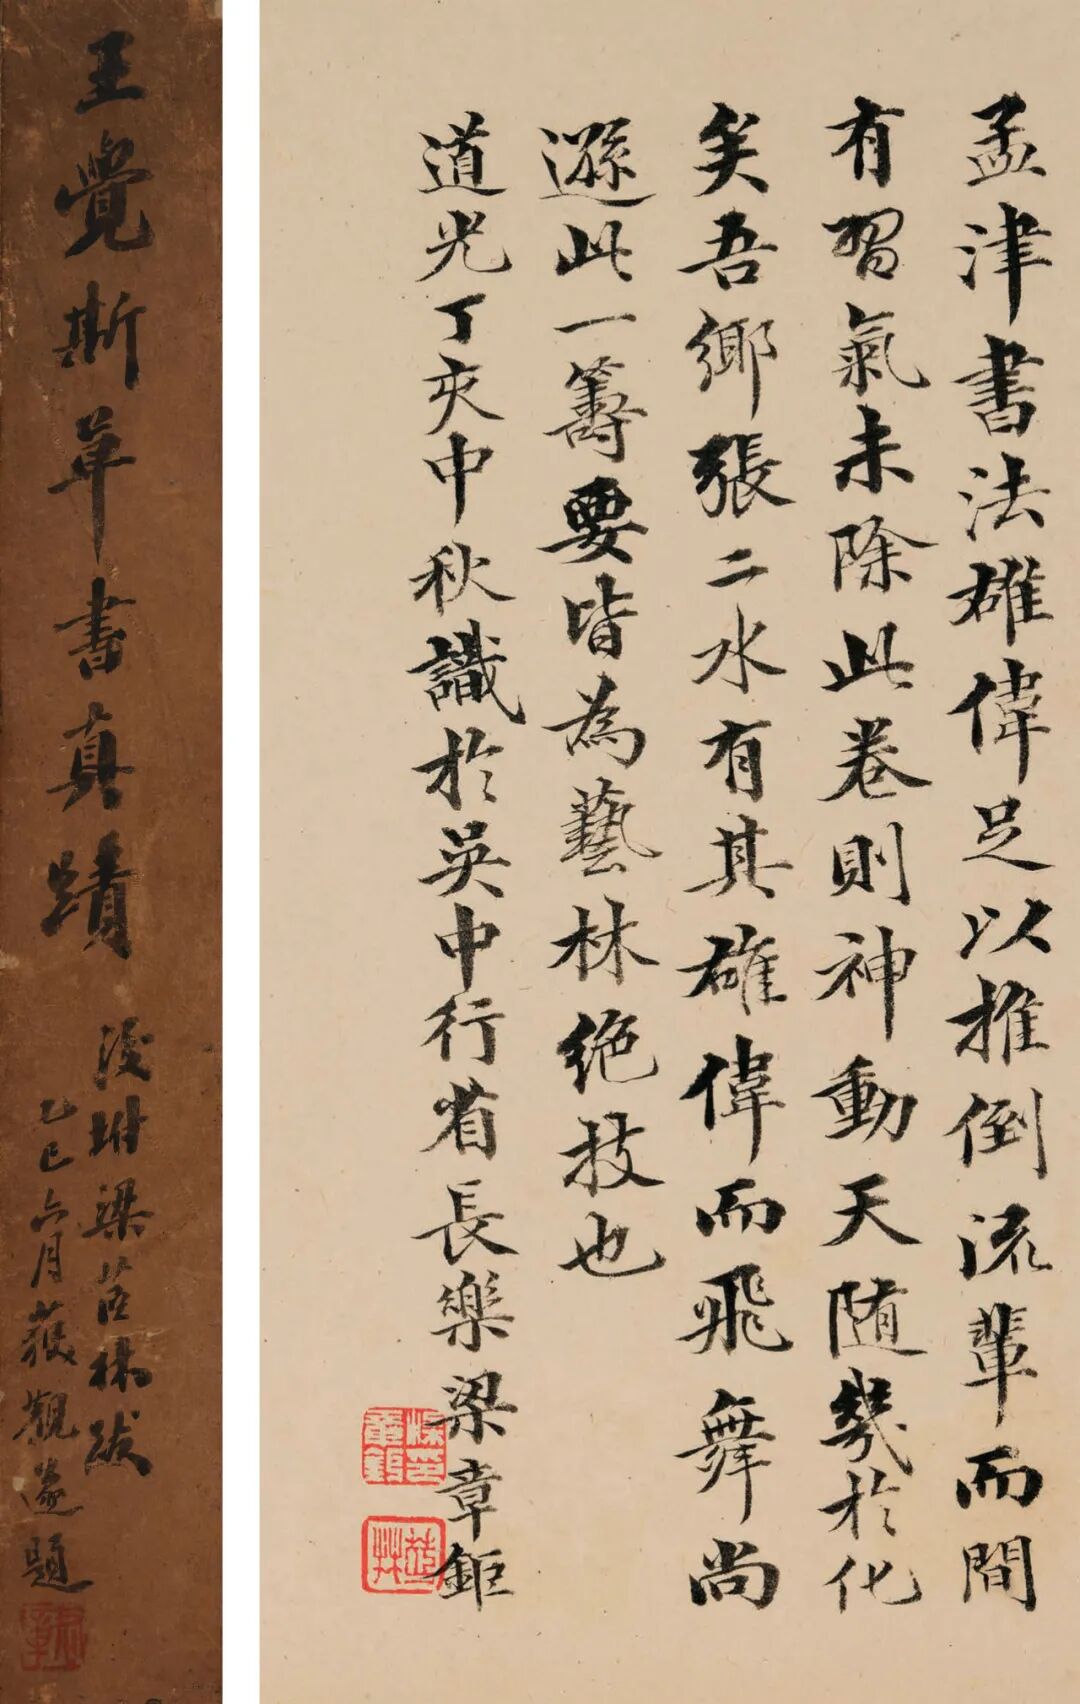 孟津書法雄偉足以推倒流輩而間
有習氣未除此卷則神動天随幾於化
矣吾鄉張二水有其雄偉而飛舞尚
遜此一籌要皆為藝林絕技也
道光丁亥中秋識於吳中行省長樂梁章鉅
梁章鉅印
茝林
王覺斯草書真蹟
後坿梁茝林跋
乙巳六月獲觀遂題